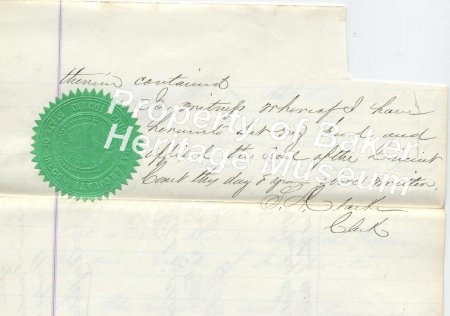 therein contained
In witness whereof I have
hereunto set my hand and
affixed the Seal of the Circuit
Court this day & year above written.
Clerk
Property of Baker
Heritage Museum